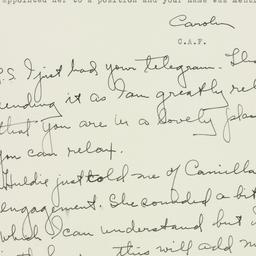 appointed her to a position and your name was
Carolyn
C.A.F.
P.S I just had your telegram.
sending it as I am greatly
that you are in a lovely
you can relax.
Huldie just told me of Camilla
engagement. She sounded a bit
which I can understand but
this will add